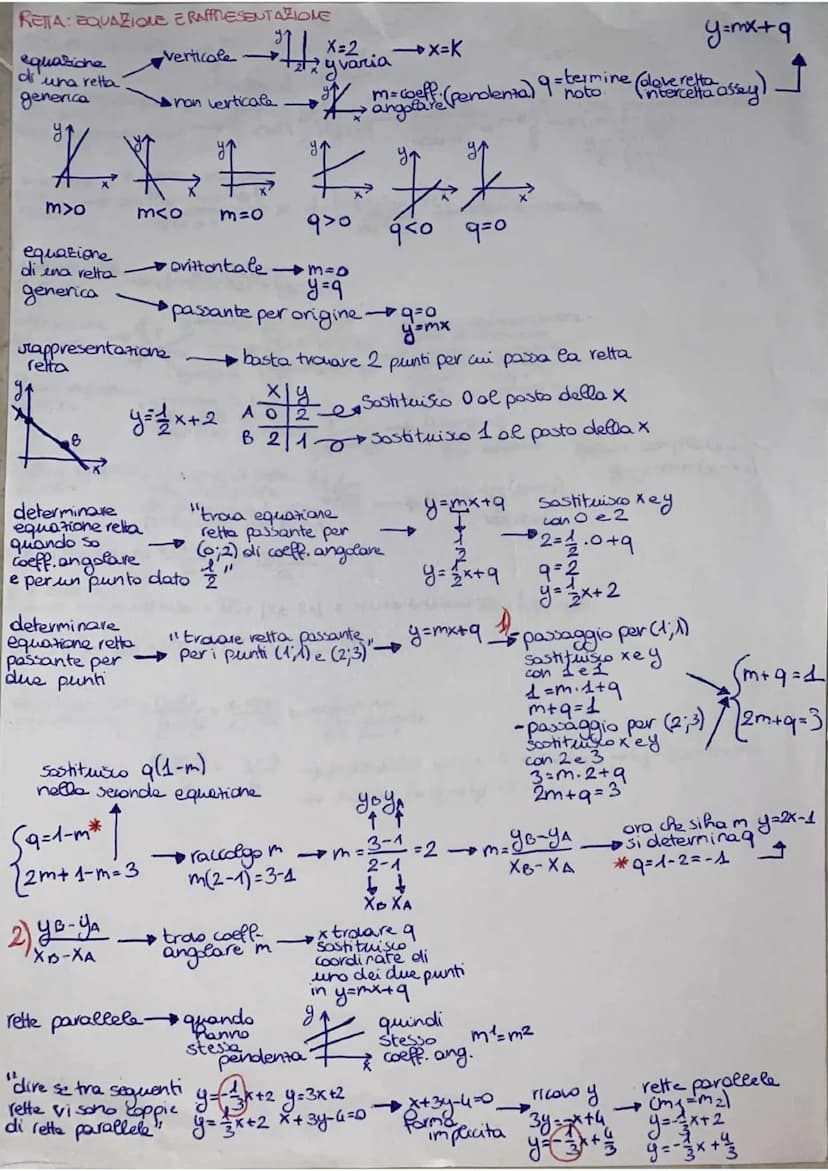 RETTA: EQUAZIONE E RAPPRESENTAZIONE
y=mx+q
equazione di una retta generica
verticale
y
2 x
x=2
y varia
x=K
non verticale
y
x
m=coeff. angolare (pendenza)
q=termine noto (dove retta intercetta asse y)
y x
m>0
y x
m<0
y x
m=0
y x
q>0
y x
q<0
y x
q=0
equazione di una retta generica
orizzontale
m=0
y=q
passante per origine
q=0
y=mx
rappresentazione retta
basta trovare 2 punti per cui passa la retta
y
A
B
x
y=1/2x+2
X|y
A 0|2
Sostituisco 0 al posto della x
B 2|1
sostituisco 1 al posto della x
determinare
equazione retta
quando so
coeff. angolare
e per un punto dato
"trova equazione
retta passante per
(0;2) di coeff. angolare
1/2"
y=mx+q
1/2
y=1/2x+q
sostituisco x e y
con 0 e 2
2=1/2·0+q
q=2
y=1/2x+2
determinare
equazione retta
passante per
due punti
"trovare retta passante
per i punti (1;1) e (2;3)"
y=mx+q
1)
-passaggio per (1;1)
sostituisco x e y
con 1 e 1
1=m·1+q
m+q=1
-passaggio per (2;3)
sostituisco x e y
con 2 e 3
3=m·2+q
2m+q=3
{m+q=1
{2m+q=3
sostituisco q(1-m)
nella seconda equazione
{q=1-m*
{2m+1-m=3
raccolgo m
m(2-1)=3-1
yB yA
m=3-1/2-1=2
xB xA
m=yB-yA/xB-xA
ora che si ha m
si determina q
*q=1-2=-1
y=2x-1
2) yB-yA/xB-xA
trovo coeff. angolare m
x trovare q
sostituisco
coordinate di
uno dei due punti
in y=mx+q
rette parallele
quando
hanno
stessa
pendenza
y
x
quindi
stesso
coeff. ang.
m1=m2
"dire se tra seguenti
rette vi sono coppie
di rette parallele"
y=-1/3x+2 y=3x+2
y=1/3x+2 x+3y-4=0
x+3y-4=0
forma
implicita
ricavo y
3y=-x+4
y=-1/3x+4/3
rette parallele
(m1=m2)
y=-1/3x+2
y=-1/3x+4/3